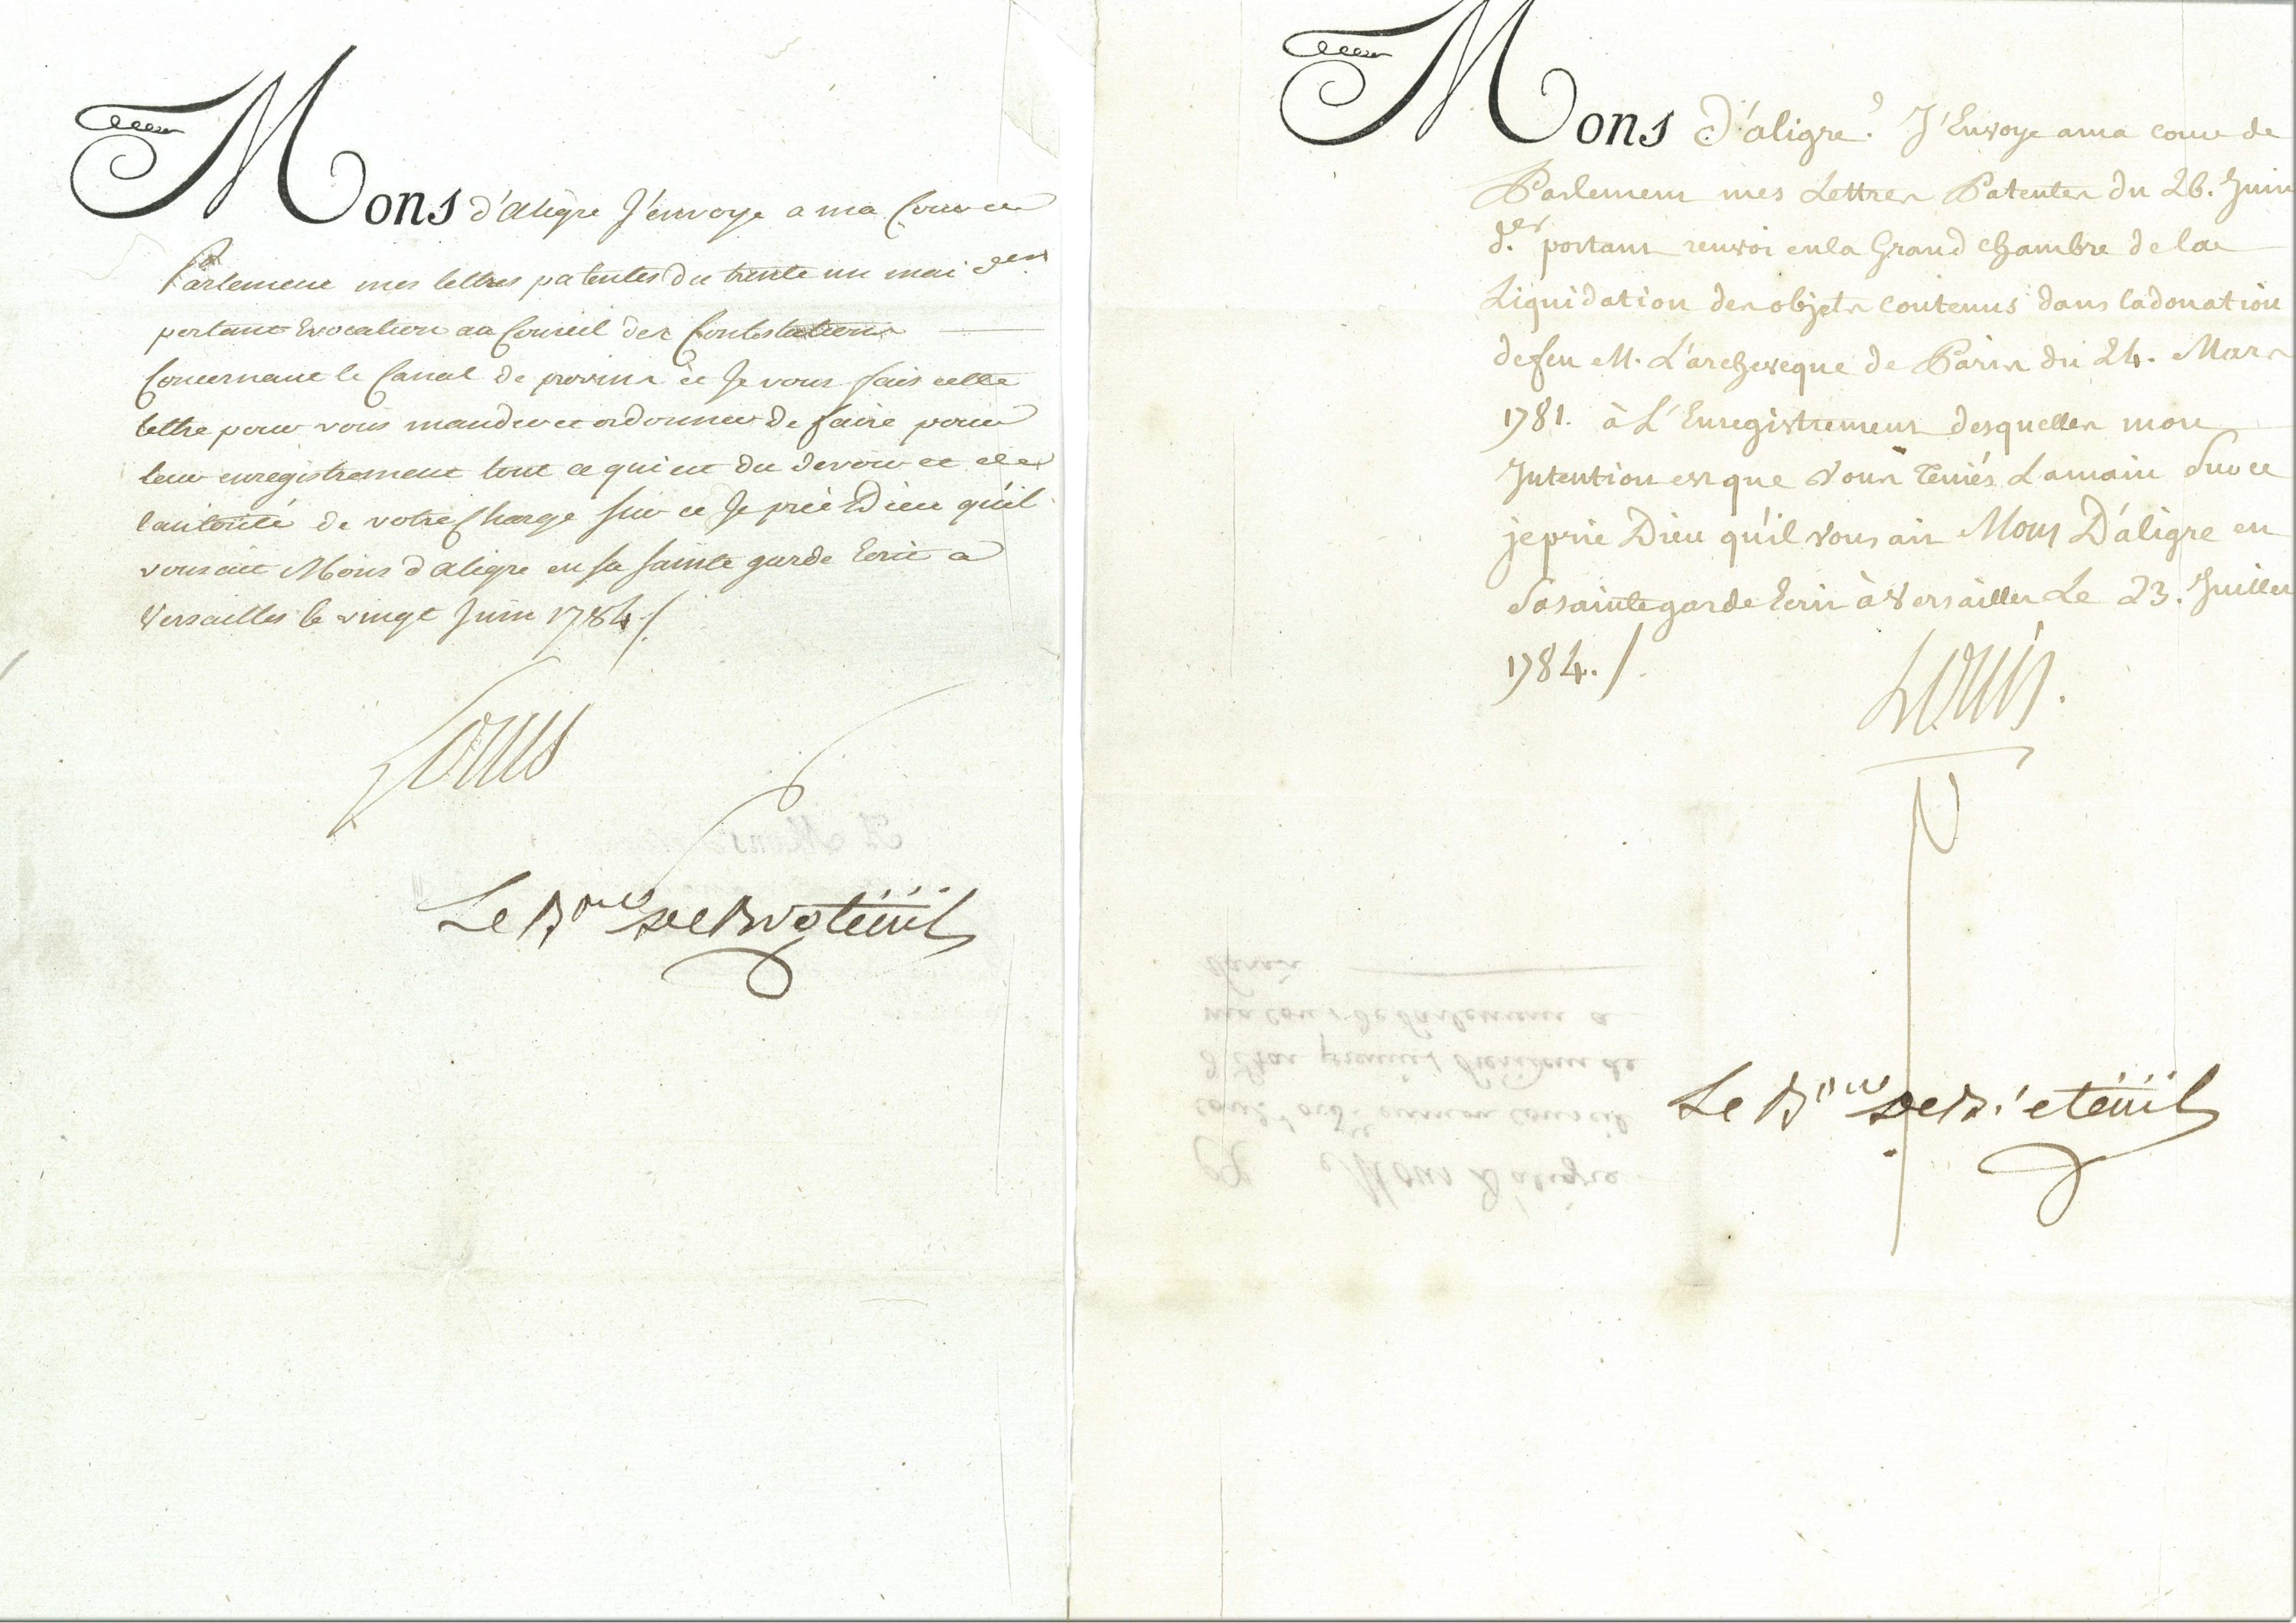 Mons d'Aligre J'envoye a ma Cour de
Parlement mes lettres patentes du trente un mai der
portant Evocation au Conseil des Contestations
Concernant le Canal de provins et Je vous fais cette
lettre pour vous mander et ordonner de faire pour
leur enregistrement tout ce qui est du devoir et de
l'autorité de votre Charge sur ce Je prie Dieu qu'il
vous ait Mons d'aligre en sa sainte garde Ecrit a
Versailles le vingt Juin 1784 ./.
Louis
Le Bon de Breteüil
Mons D'aligre. J'Envoye a ma cour de
Parlement mes Lettres Patentes du 26. Juin
d.er portant renvoi en la Grand Chambre de la
Liquidation des objets contenus dans la donation
de feu M. L'archeveque de Paris du 24. Mars
1781. à L'Enregistrement desquelles mon
Intention est que Vous Teniés La main Sur ce
je prie Dieu qu'il vous ait Mons D'aligre en
Sa sainte garde Ecrit à Versailles Le 23. Juillet
1784. /.
Louis.
Le Bon de Breteüil
A Mons D'aligre
con.er ord.re en mon Conseil
d'Etat premier President de
ma Cour de Parlement a
Paris